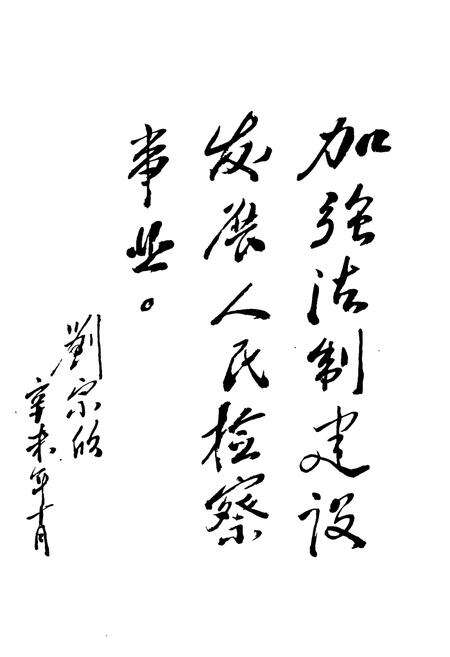 加强法制建设
发展人民检察
事业。
劉宗欣
辛未年十月